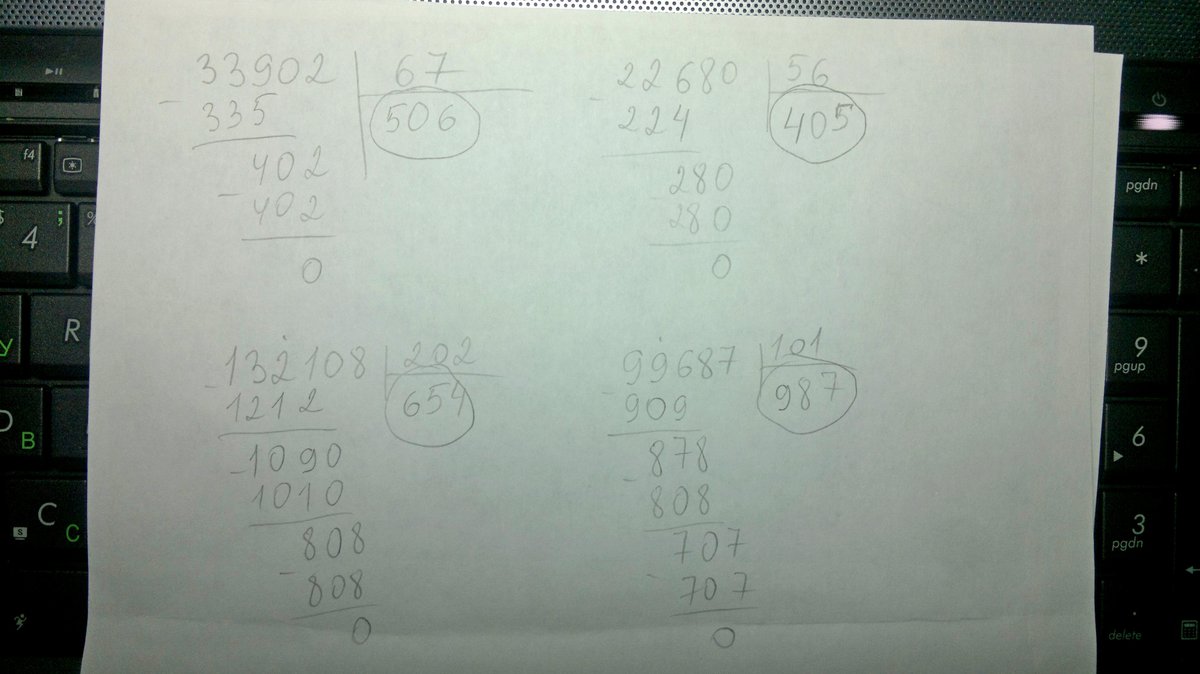 33902 67
- 335 506
402
- 402
0
22680 56
- 224 405
280
280
0
132108 202
- 1212 654
- 1090
1010
808
- 808
0
99687 101
- 909 987
878
- 808
707
- 707
0
f4
$ ;
4
%
R
У
D
В
S
C
С
pgdn
*
9
pgup
6
3
pgdn
.
delete